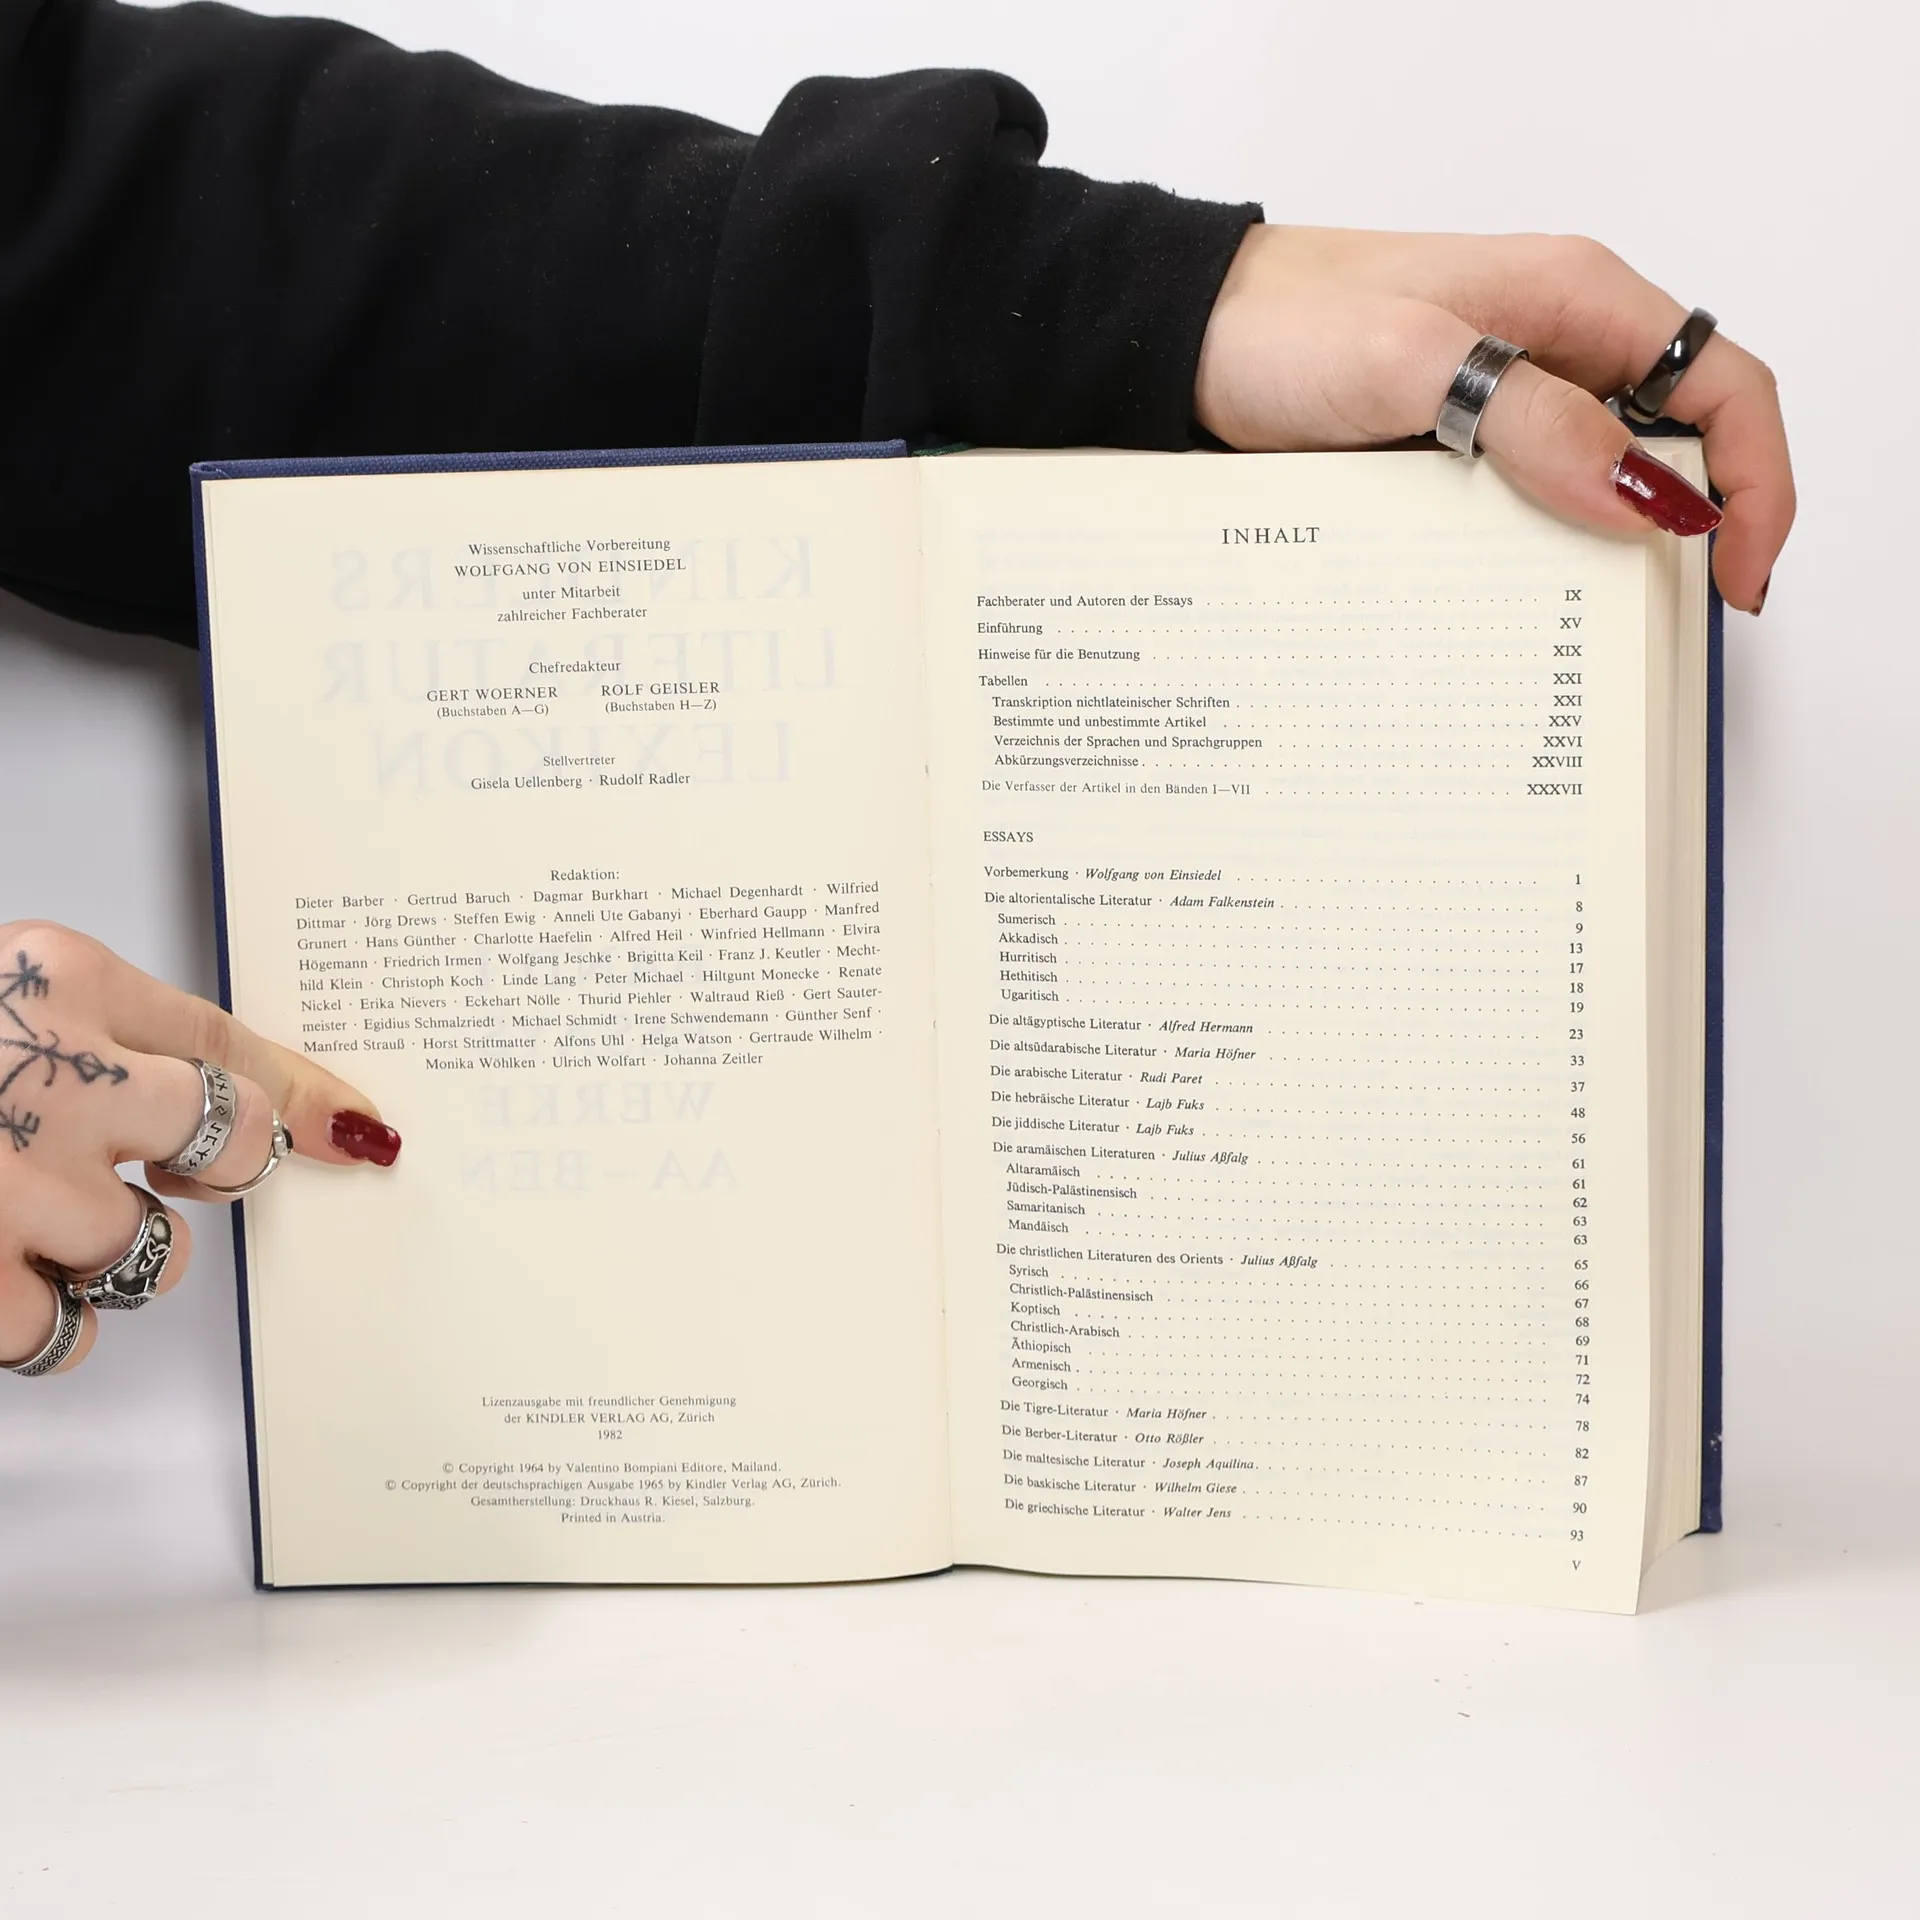 Wissenschaftliche Vorbereitung
WOLFGANG VON EINSIEDEL
unter Mitarbeit
zahlreicher Fachberater
Chefredakteur
GERT WOERNER ROLF GEISLER
(Buchstaben A—G) (Buchstaben H—Z)
Stellvertreter
Gisela Uellenberg · Rudolf Radler
Redaktion:
Dieter Barber · Gertrud Baruch · Dagmar Burkhart · Michael Degenhardt · Wilfried
Dittmar · Jörg Drews · Steffen Ewig · Anneli Ute Gabanyi · Eberhard Gaupp · Manfred
Grunert · Hans Günther · Charlotte Haefelin · Alfred Heil · Winfried Hellmann · Elvira
Högemann · Friedrich Irmen · Wolfgang Jeschke · Brigitta Keil · Franz J. Keutler · Mecht-
hild Klein · Christoph Koch · Linde Lang · Peter Michael · Hiltgunt Monecke · Renate
Nickel · Erika Nievers · Eckehart Nölle · Thurid Piehler · Waltraud Rieß · Gert Sauter-
meister · Egidius Schmalzriedt · Michael Schmidt · Irene Schwendemann · Günther Senf ·
Manfred Strauß · Horst Strittmatter · Alfons Uhl · Helga Watson · Gertraude Wilhelm ·
Monika Wöhlken · Ulrich Wolfart · Johanna Zeitler
Lizenzausgabe mit freundlicher Genehmigung
der KINDLER VERLAG AG, Zürich
1982
© Copyright 1964 by Valentino Bompiani Editore, Mailand.
© Copyright der deutschsprachigen Ausgabe 1965 by Kindler Verlag AG, Zürich.
Gesamtherstellung: Druckhaus R. Kiesel, Salzburg.
Printed in Austria.
INHALT
Fachberater und Autoren der Essays IX
Einführung XV
Hinweise für die Benutzung XIX
Tabellen XXI
Transkription nichtlateinischer Schriften XXI
Bestimmte und unbestimmte Artikel XXV
Verzeichnis der Sprachen und Sprachgruppen XXVI
Abkürzungsverzeichnisse XXVIII
Die Verfasser der Artikel in den Bänden I—VII XXXVII
ESSAYS
Vorbemerkung · Wolfgang von Einsiedel 1
Die altorientalische Literatur · Adam Falkenstein 8
Sumerisch 9
Akkadisch 13
Hurritisch 17
Hethitisch 18
Ugaritisch 19
Die altägyptische Literatur · Alfred Hermann 23
Die altsüdarabische Literatur · Maria Höfner 33
Die arabische Literatur · Rudi Paret 37
Die hebräische Literatur · Lajb Fuks 48
Die jiddische Literatur · Lajb Fuks 56
Die aramäischen Literaturen · Julius Aßfalg 61
Altaramäisch 61
Jüdisch-Palästinensisch 62
Samaritanisch 63
Mandäisch 63
Die christlichen Literaturen des Orients · Julius Aßfalg 65
Syrisch 66
Christlich-Palästinensisch 67
Koptisch 68
Christlich-Arabisch 69
Äthiopisch 71
Armenisch 72
Georgisch 74
Die Tigre-Literatur · Maria Höfner 78
Die Berber-Literatur · Otto Rößler 82
Die maltesische Literatur · Joseph Aquilina 87
Die baskische Literatur · Wilhelm Giese 90
Die griechische Literatur · Walter Jens 93
V